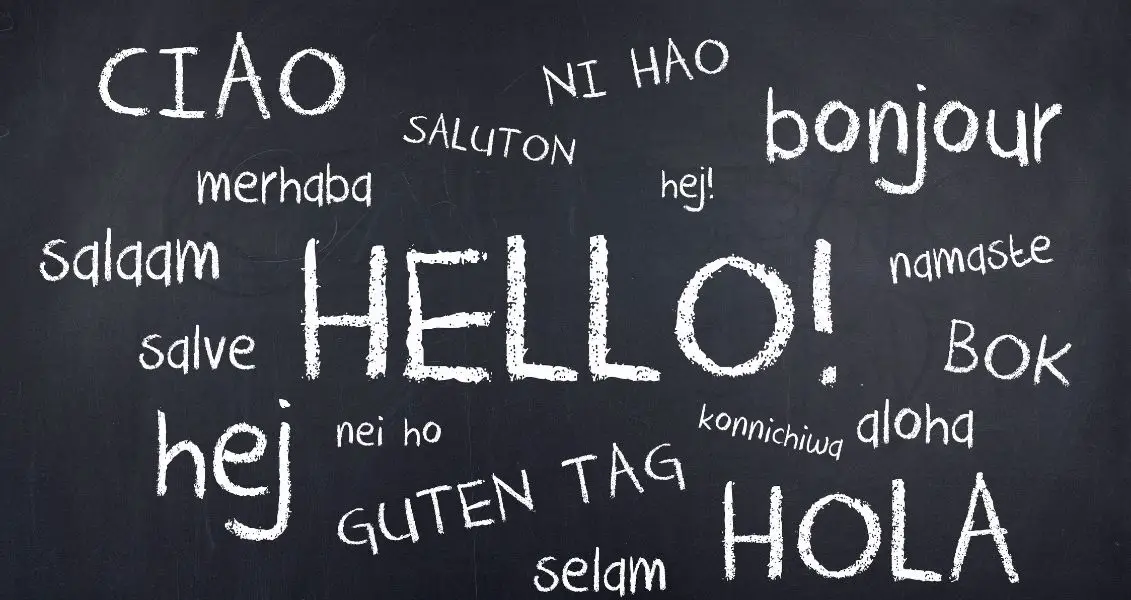 CIAO
NI HAO
SALUTON
bonjour
merhaba
hej!
salaam
HELLO!
namaste
salve
BOK
hej
nei ho
konnichiwa
aloha
GUTEN TAG
HOLA
selam